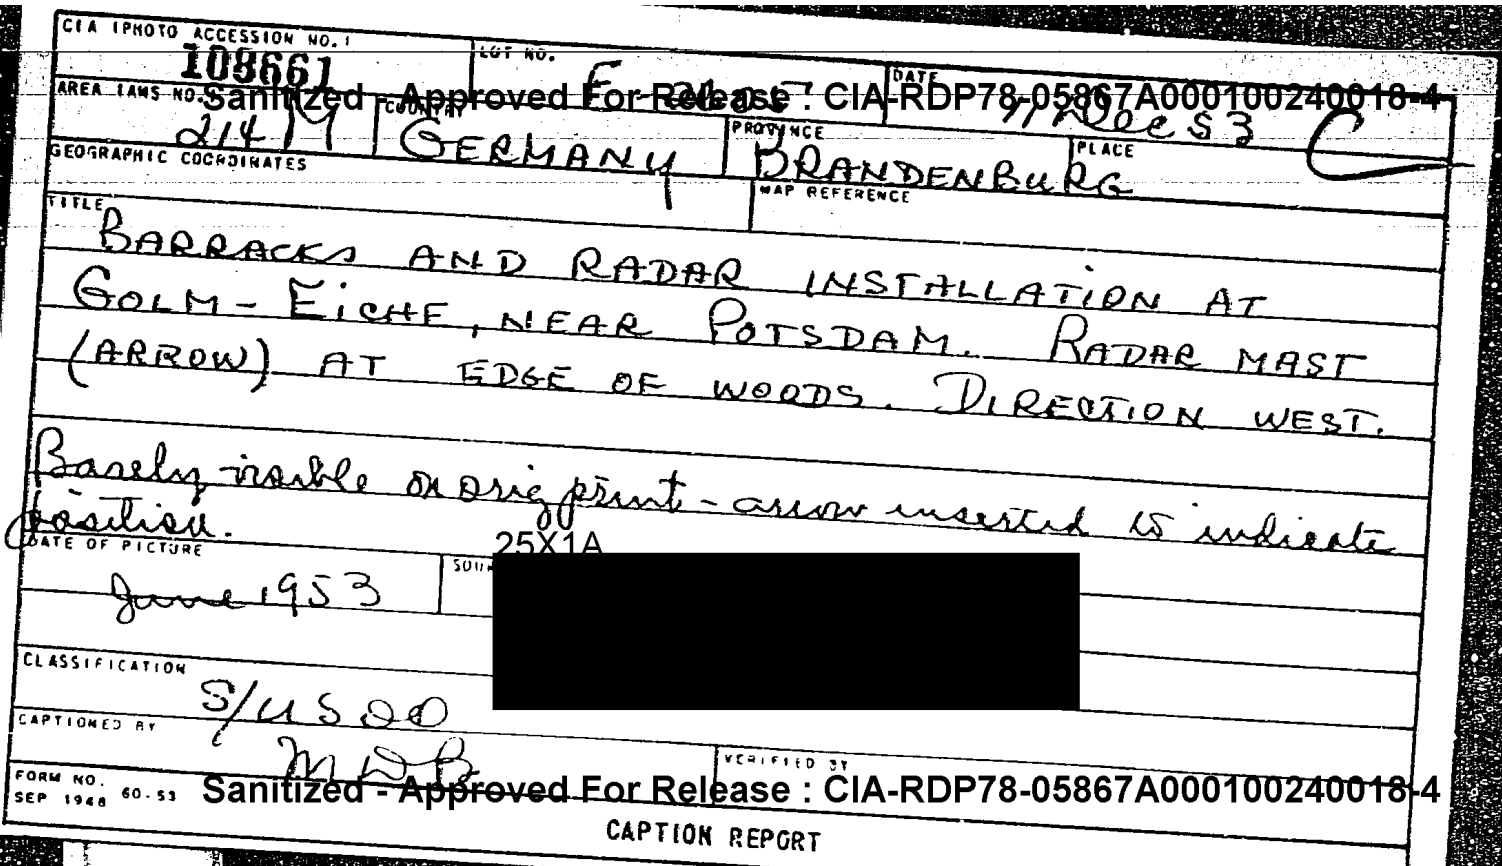 CIA (PHOTO ACCESSION NO.)
108661
LOT NO.
DATE
Sanitized - Approved For Release : CIA-RDP78-05867A000100240018-4
11 Dec 53
AREA (AMS NO.)
214 M
COUNTRY
GERMANY
PROVINCE
BRANDENBURG
PLACE
C
GEOGRAPHIC COORDINATES
MAP REFERENCE
TITLE
BARRACKS AND RADAR INSTALLATION AT
GOLM-EICHE, NEAR POTSDAM. RADAR MAST
(ARROW) AT EDGE OF WOODS. DIRECTION WEST.
Barely visible on orig print - arrow inserted to indicate
position.
DATE OF PICTURE
June 1953
25X1A
CLASSIFICATION
S/USOO
CAPTIONED BY
MDB
VERIFIED BY
FORM NO. 60-53
SEP 1948
Sanitized - Approved For Release : CIA-RDP78-05867A000100240018-4
CAPTION REPORT